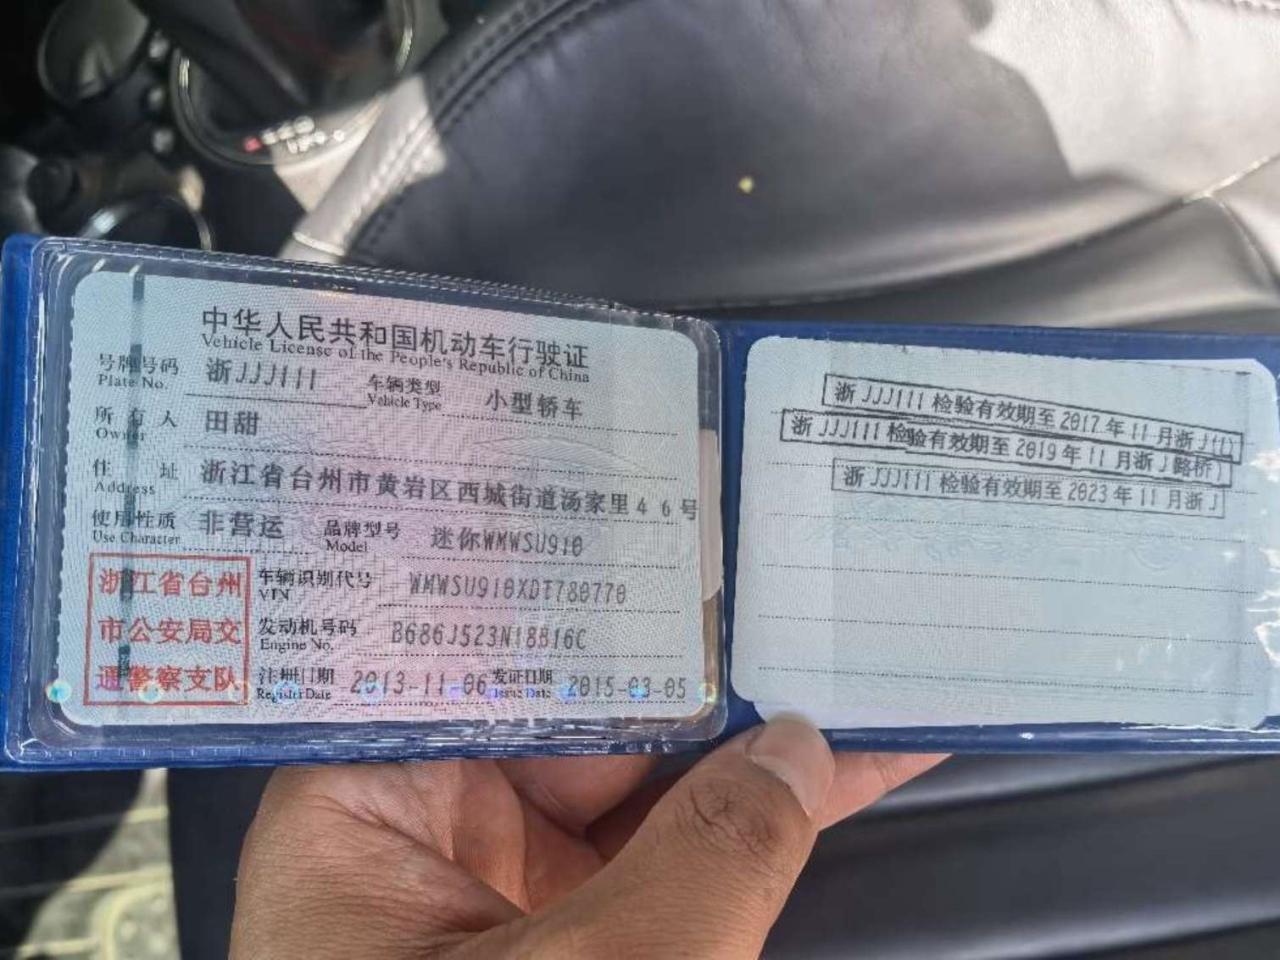 中华人民共和国机动车行驶证
Vehicle License of the People's Republic of China
号牌号码 浙JJJ111 车辆类型 小型轿车
Plate No. Vehicle Type
所有人 田甜
Owner
住址 浙江省台州市黄岩区西城街道汤家里46号
Address
使用性质 非营运 品牌型号 迷你WMWSU910
Use Character Model
浙江省台州
市公安局交
通警察支队
车辆识别代号 WMWSU910XDT780770
VIN
发动机号码 B686J523N18B16C
Engine No.
注册日期 2013-11-06 发证日期 2015-03-05
Register Date Issue Date
浙JJJ111检验有效期至2017年11月浙J(1)
浙JJJ111检验有效期至2019年11月浙J(路桥)
浙JJJ111检验有效期至2023年11月浙J